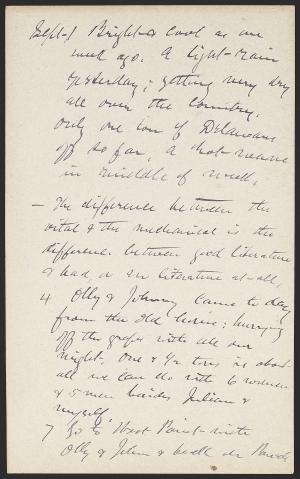 Sept-1 Bright & cool as one
week ago. A light-rain
yesterday; getting very dry
all over the country.
Only one ton of Delawares
off so far, a hot-wave
in middle of week.
— The difference between the
vital & the mechanical is the
difference between good literature
& bad or no literature at-all,
4 Olly & Johnny came to day
from the old home; hurrying
off the grapes with all our
might. One & 1/2 tons is about
all we can do with 6 women
& 5 men besides Julian &
myself
7 Go to West Point-with
Olly & John & walk